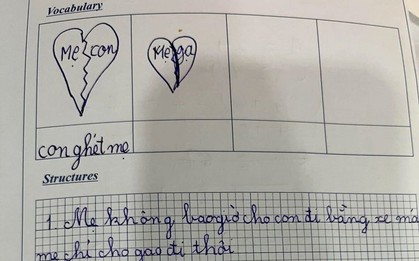 Vocabulary
Mẹ con
Mẹ gạo
con ghét mẹ
Structures
1. Mẹ không bao giờ cho con đi bằng xe má
mẹ chỉ cho gạo đi thôi